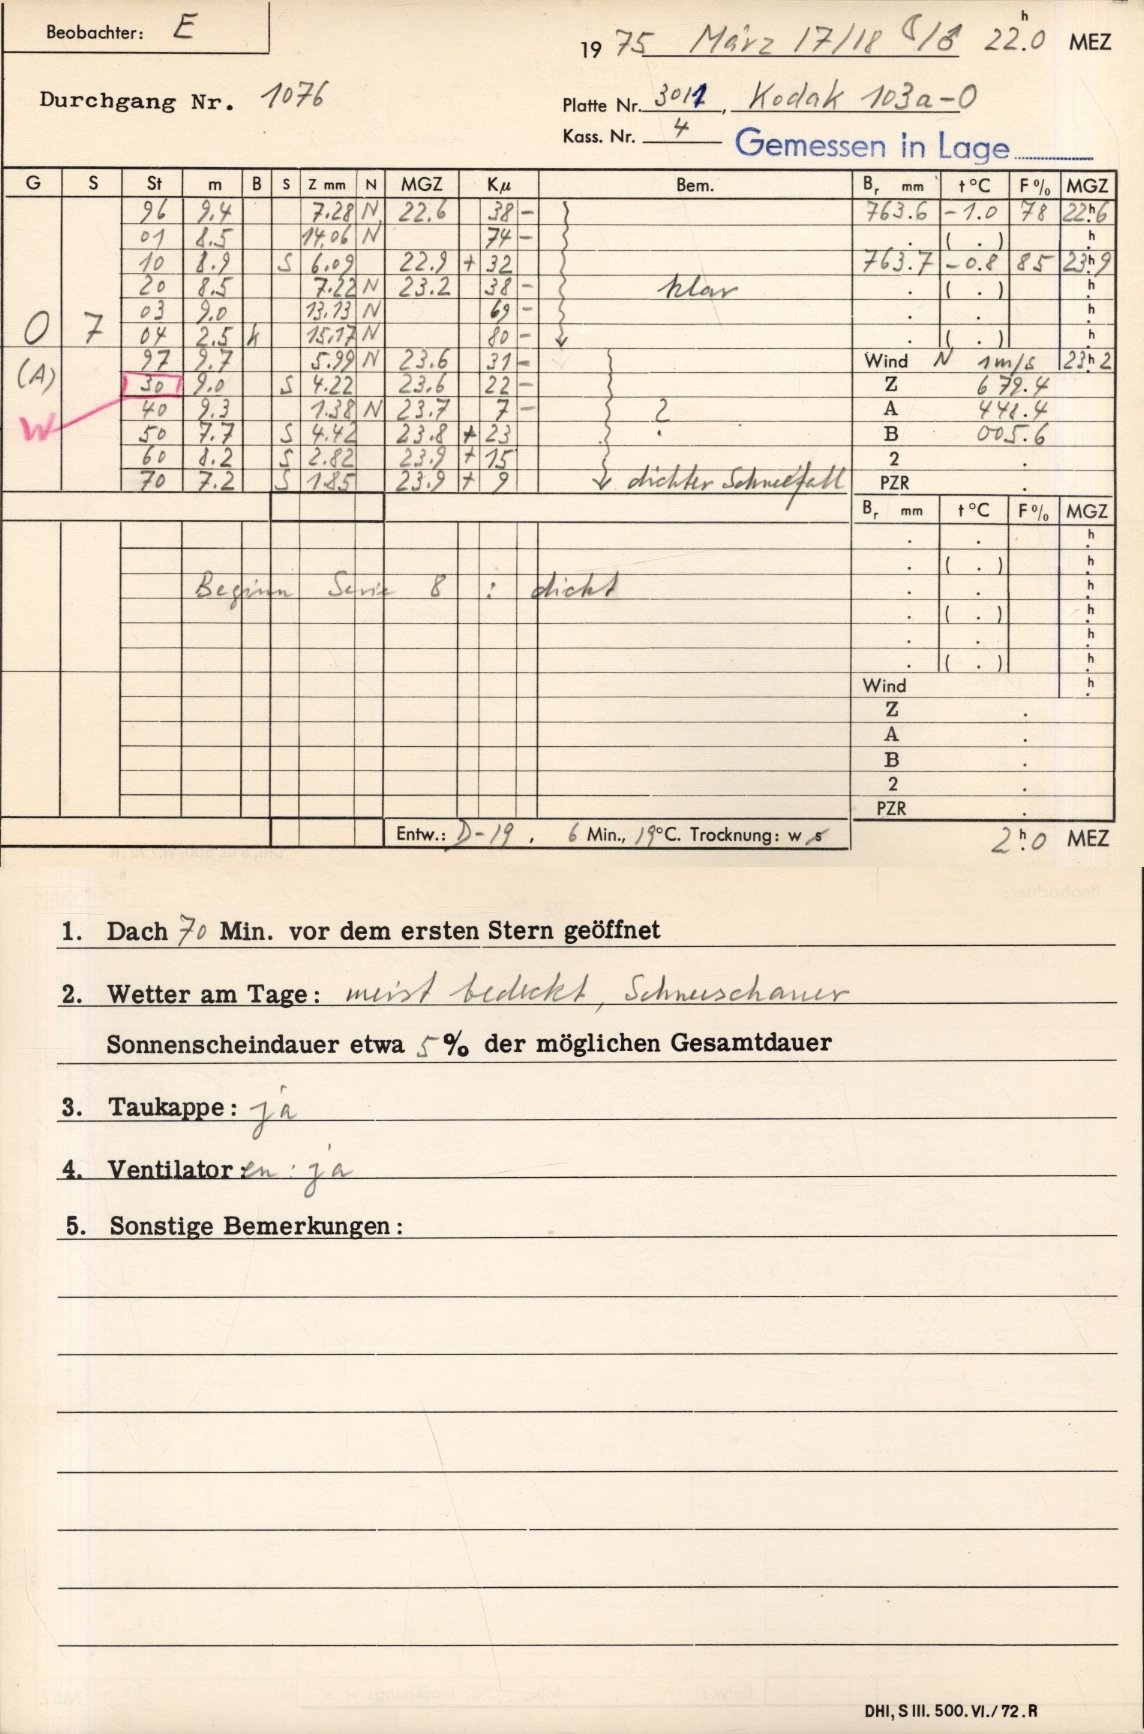 Beobachter: E
1975 März 17/18 22h.0 MEZ
Durchgang Nr. 1076
Platte Nr. 3011, Kodak 103a-O
Kass. Nr. 4 Gemessen in Lage
G S St m B S Z mm N MGZ Kμ Bem. Br mm t °C F % MGZ
96 9.4 7.28 N 22.6 38 - 763.6 -1.0 78 22h.6
01 8.5 14.06 N 74 - . ( . ) h.
10 8.9 S 6.09 22.9 + 32 763.7 -0.8 85 23h.9
20 8.5 7.22 N 23.2 38 - klar . ( . ) h.
03 9.0 13.13 N 69 - . . h.
O 7 04 2.5 k 15.17 N 80 - . ( . ) h.
97 9.7 5.99 N 23.6 31 - Wind N 1m/s 23h.2
(A) 30 9.0 S 4.22 23.6 22 - Z 679.4
40 9.3 1.38 N 23.7 7 - ? A 441.4
W 50 7.7 S 4.42 23.8 + 23 B 005.6
60 8.2 S 2.82 23.9 + 15 2 .
70 7.2 S 1.85 23.9 + 9 dichter Schneefall PZR .
Br mm t °C F % MGZ
. . h.
. ( . ) h.
Beginn Serie 8 : dicht . . h.
. ( . ) h.
. . h.
. ( . ) h.
Wind h.
Z .
A .
B .
2 .
PZR .
Entw.: D-19, 6 Min., 19°C. Trocknung: w s 2h.0 MEZ
1. Dach 70 Min. vor dem ersten Stern geöffnet
2. Wetter am Tage: meist bedeckt, Schneeschauer
Sonnenscheindauer etwa 5% der möglichen Gesamtdauer
3. Taukappe: ja
4. Ventilator:en: ja
5. Sonstige Bemerkungen:
DHI, S III. 500. VI./72. R